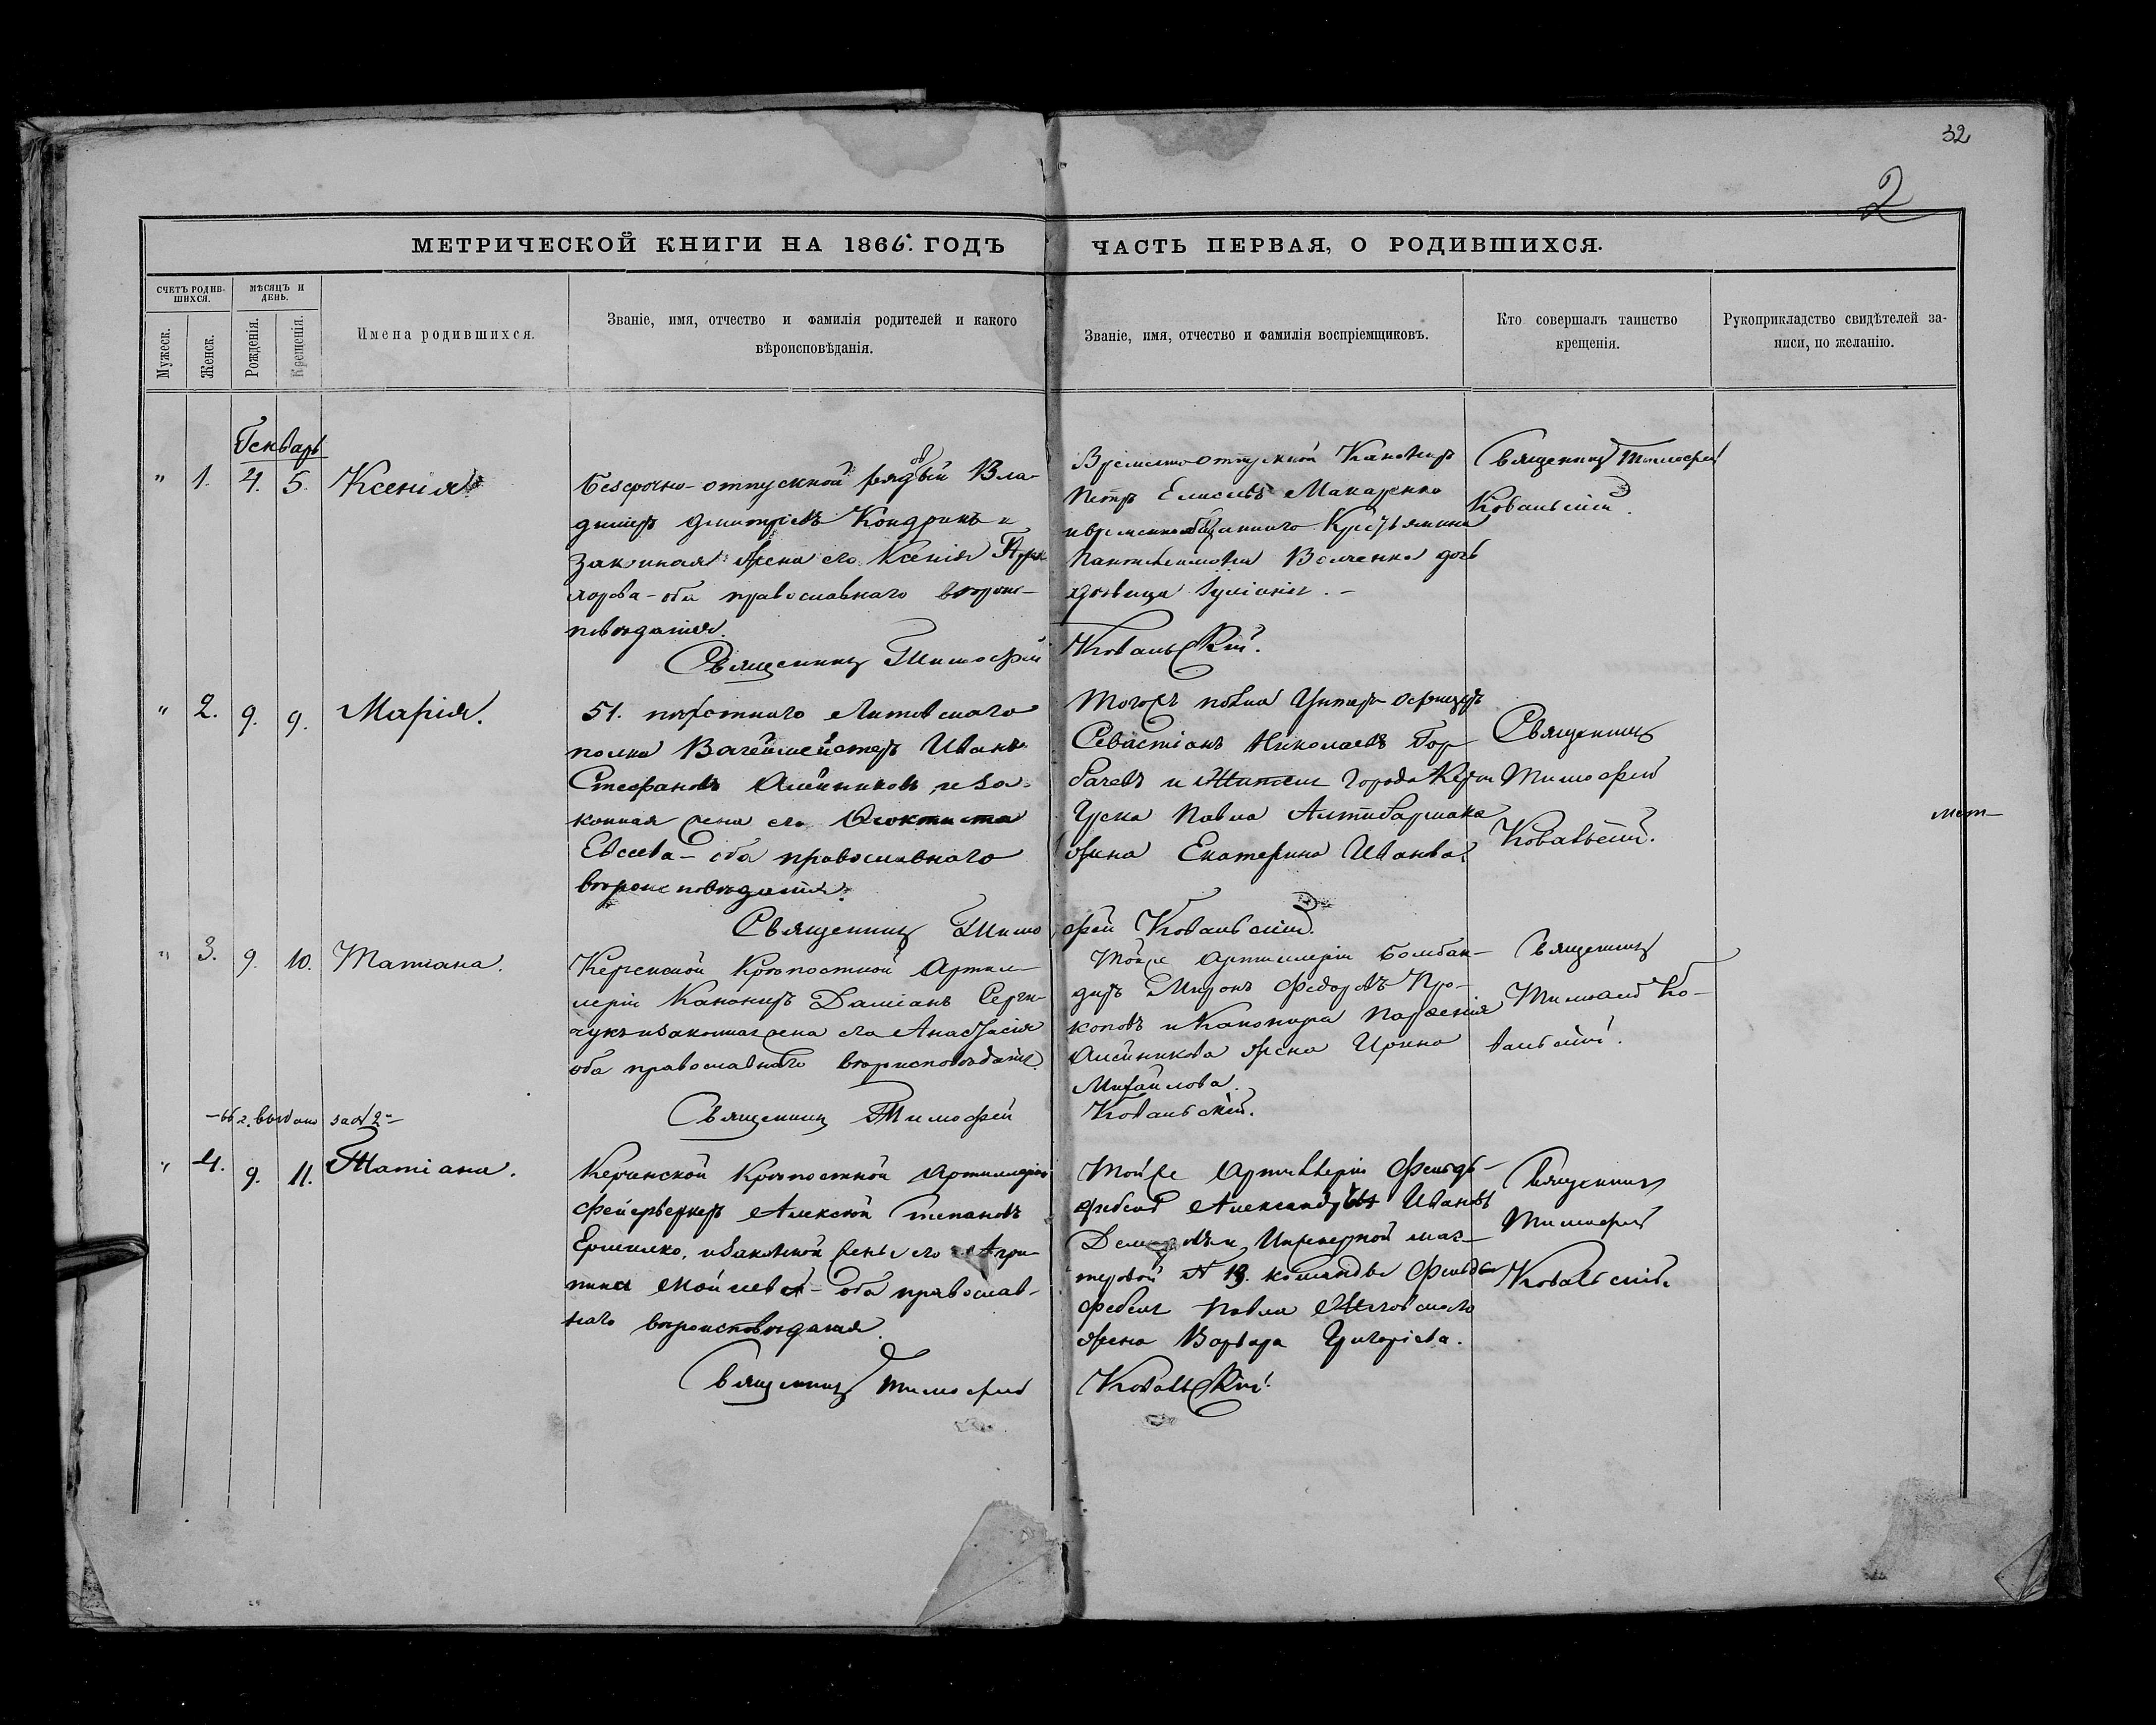 32
2
МЕТРИЧЕСКОЙ КНИГИ НА 1866. ГОДЪ
ЧАСТЬ ПЕРВАЯ, О РОДИВШИХСЯ.
СЧЕТЪ РОДИВ-
ШИХСЯ.
МѢСЯЦЪ И
ДЕНЬ.
Мужеск.
Женск.
Рожденія.
Крещенія.
Имена родившихся.
Званіе, имя, отчество и фамилія родителей и какого
вѣроисповѣданія.
Званіе, имя, отчество и фамилія воспріемщиковъ.
Кто совершалъ таинство
крещенія.
Рукоприкладство свидѣтелей за-
писи, по желанію.
Генварь
" 1. 4. 5. Ксенія
Безсрочно-отпускной рядовый Вла-
димиръ Димитріевъ Кондринъ и
законная жена его Ксенія
оба православнаго вѣроис-
повѣданія.
Священникъ Тимофей
Временно-отпускной Канониръ
Петръ Елисеевъ Макаренко
и временнообязаннаго Крестьянина
Пантелеимона дочь
дѣвица Іуліанія. -
Ковальскій.
Священникъ Тимофей
Ковальскій.
" 2. 9. 9. Марія.
51. пѣхотнаго Литовскаго
полка Вагенмейстеръ Иванъ
Стефановъ Алейниковъ, и за-
конная жена его Феоктиста
Евсеева - оба православнаго
вѣроисповѣданія.
Священникъ Тимо
Тогожъ полка Унтеръ-офицеръ
Севастіанъ Николаевъ Гор-
бачевъ и города
Павла
жена Екатерина Иванова.
фей Ковальскій.
Священникъ
Тимофей
Ковальскій.
мет-
" 3. 9. 10. Татіана.
Керченской Крѣпостной Артил-
леріи Канониръ Даміанъ
и законная жена его Анастасія
оба православнаго вѣроисповѣданія.
Священникъ Тимофей
Тойже Артиллеріи Бомбан-
диръ Миронъ Федоровъ Про-
коповъ и Канонира Парѳенія
Алейникова жена Ирина
Михайлова.
Ковальскій.
Священникъ
Тимофей Ко-
вальскій.
-66 г. выдано за № 2-
" 4. 9. 11. Татіана.
Керчинской Крѣпостной Артиллеріи
Фейерверкеръ Алексей Степановъ
Ермилко, и законной жены его Агри-
пины Мойсевой - оба православ-
наго вѣроисповѣданія.
Священникъ Тимофей
Тойже Артиллеріи Фельд-
фебель Александръ Ивановъ
Инженерной мас-
теровой № 13. команды Фельд-
фебеля Павла
жена Варвара Григоріева.
Ковальскій.
Священникъ
Тимофей
Ковальскій.